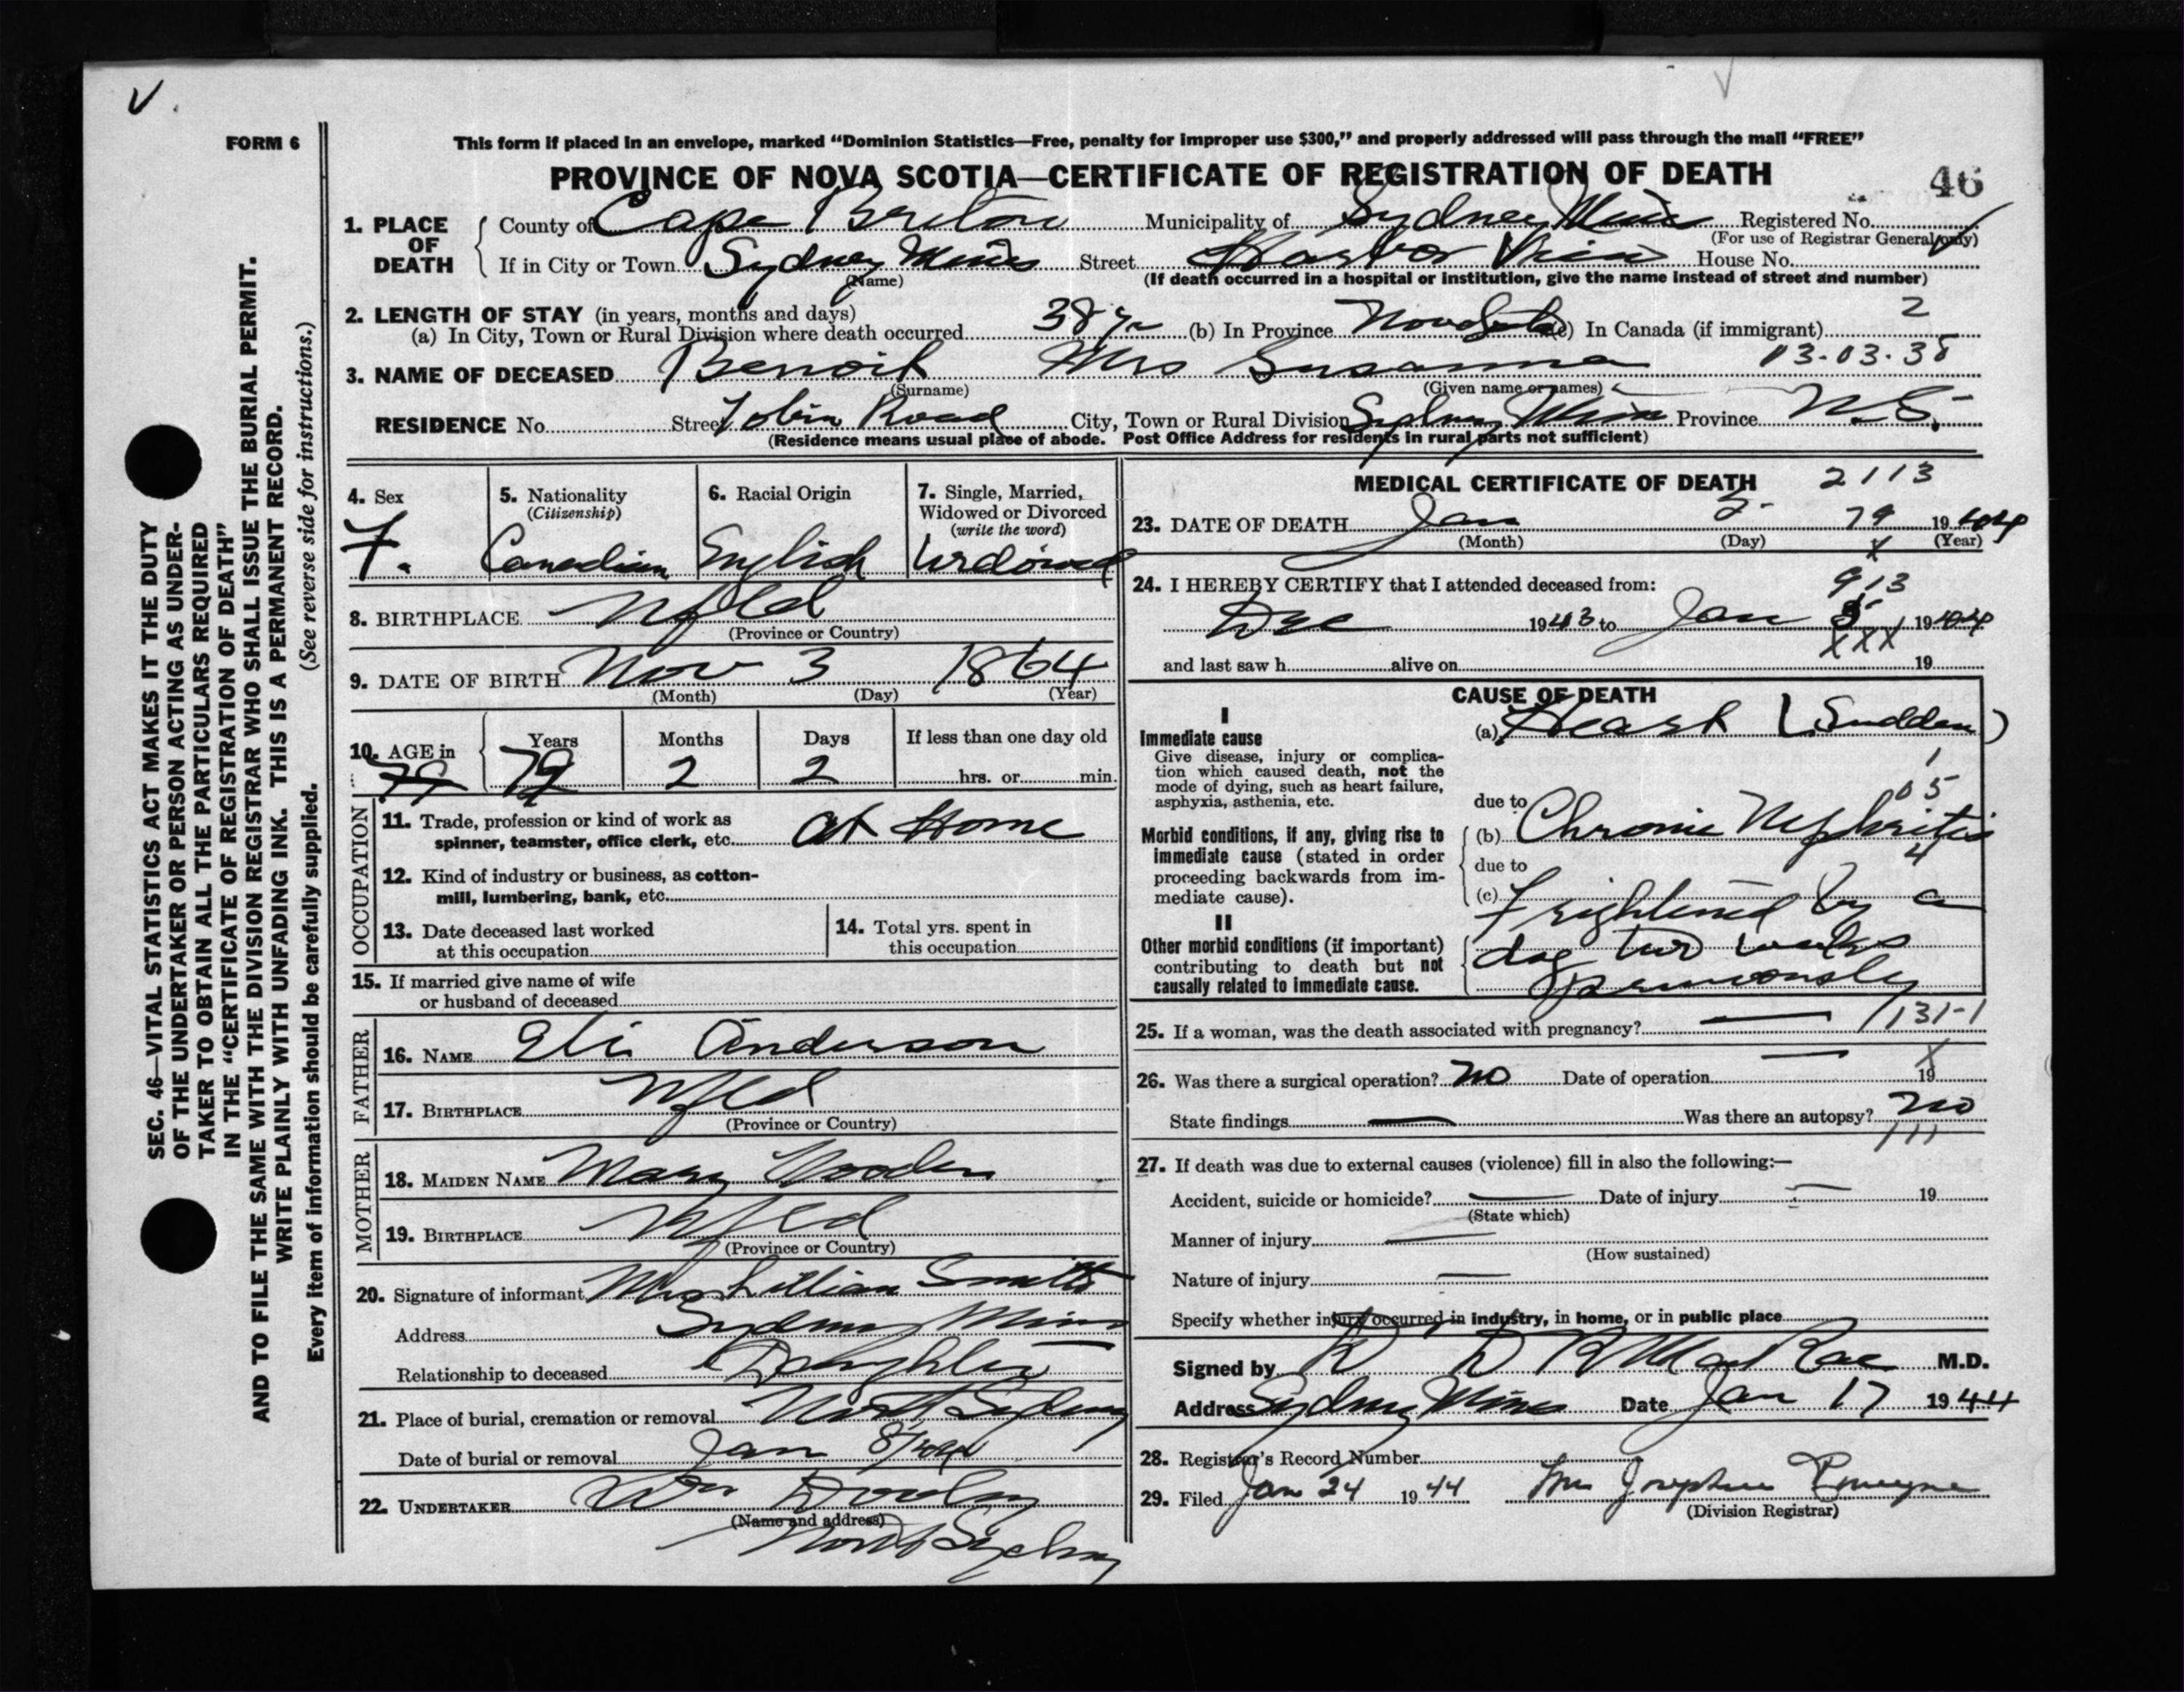 V.
FORM 6
This form if placed in an envelope, marked "Dominion Statistics—Free, penalty for improper use $300," and properly addressed will pass through the mail "FREE"
PROVINCE OF NOVA SCOTIA—CERTIFICATE OF REGISTRATION OF DEATH
46
1. PLACE OF DEATH
County of Cape Breton Municipality of Sydney Mines Registered No.
(For use of Registrar General only)
If in City or Town Sydney Mines Street Harbor View House No.
(Name)
(If death occurred in a hospital or institution, give the name instead of street and number)
2. LENGTH OF STAY (in years, months and days)
2
(a) In City, Town or Rural Division where death occurred 38 yr (b) In Province Nova Scotia (c) In Canada (if immigrant)
3. NAME OF DECEASED Benoit Mrs Susanna 13-03-38
(Surname) (Given name or names)
RESIDENCE No. Street Tobin Road City, Town or Rural Division Sydney Mines Province N.S.
(Residence means usual place of abode. Post Office Address for residents in rural parts not sufficient)
4. Sex
F.
5. Nationality
(Citizenship)
Canadian
6. Racial Origin
English
7. Single, Married,
Widowed or Divorced
(write the word)
Widowed
8. BIRTHPLACE Nfld
(Province or Country)
9. DATE OF BIRTH Nov 3 1864
(Month) (Day) (Year)
10. AGE in
79
Years Months Days If less than one day old
79 2 2 hrs. or min.
OCCUPATION
11. Trade, profession or kind of work as
spinner, teamster, office clerk, etc. at Home
12. Kind of industry or business, as cotton-
mill, lumbering, bank, etc.
13. Date deceased last worked
at this occupation
14. Total yrs. spent in
this occupation
15. If married give name of wife
or husband of deceased
FATHER
16. NAME Eli Anderson
17. BIRTHPLACE Nfld
(Province or Country)
MOTHER
18. MAIDEN NAME Mary
19. BIRTHPLACE Nfld
(Province or Country)
20. Signature of informant Mrs Lillian Smith
Address Sydney Mines
Relationship to deceased Daughter
21. Place of burial, cremation or removal North Sydney
Date of burial or removal Jan 8/1944
22. UNDERTAKER Wm Dooley
(Name and address)
North Sydney
MEDICAL CERTIFICATE OF DEATH 2113
23. DATE OF DEATH Jan 5 79 1944
(Month) (Day) (Year)
X
24. I HEREBY CERTIFY that I attended deceased from:
913
Dec 1943 to Jan 5 1944
XXX
and last saw h alive on 19
CAUSE OF DEATH
I
Immediate cause
Give disease, injury or complica-
tion which caused death, not the
mode of dying, such as heart failure,
asphyxia, asthenia, etc.
(a) Heart (Sudden)
1
05
due to
Morbid conditions, if any, giving rise to
immediate cause (stated in order
proceeding backwards from im-
mediate cause).
(b) Chronic Nephritis
4
due to
(c) Frightened by a
II
Other morbid conditions (if important)
contributing to death but not
causally related to immediate cause.
dog two weeks
previously
25. If a woman, was the death associated with pregnancy? — 131-1
X
26. Was there a surgical operation? no Date of operation — 19
State findings — Was there an autopsy? no
111
27. If death was due to external causes (violence) fill in also the following:—
Accident, suicide or homicide? — Date of injury — 19
(State which)
Manner of injury —
(How sustained)
Nature of injury —
Specify whether injury occurred in industry, in home, or in public place
Signed by MacRae M.D.
Address Sydney Mines Date Jan 17 1944
28. Registrar's Record Number
29. Filed Jan 24 1944 Mrs Josephine
(Division Registrar)
SEC. 46—VITAL STATISTICS ACT MAKES IT THE DUTY
OF THE UNDERTAKER OR PERSON ACTING AS UNDER-
TAKER TO OBTAIN ALL THE PARTICULARS REQUIRED
IN THE "CERTIFICATE OF REGISTRATION OF DEATH"
AND TO FILE THE SAME WITH THE DIVISION REGISTRAR WHO SHALL ISSUE THE BURIAL PERMIT.
WRITE PLAINLY WITH UNFADING INK. THIS IS A PERMANENT RECORD.
(See reverse side for instructions.)
Every item of information should be carefully supplied.